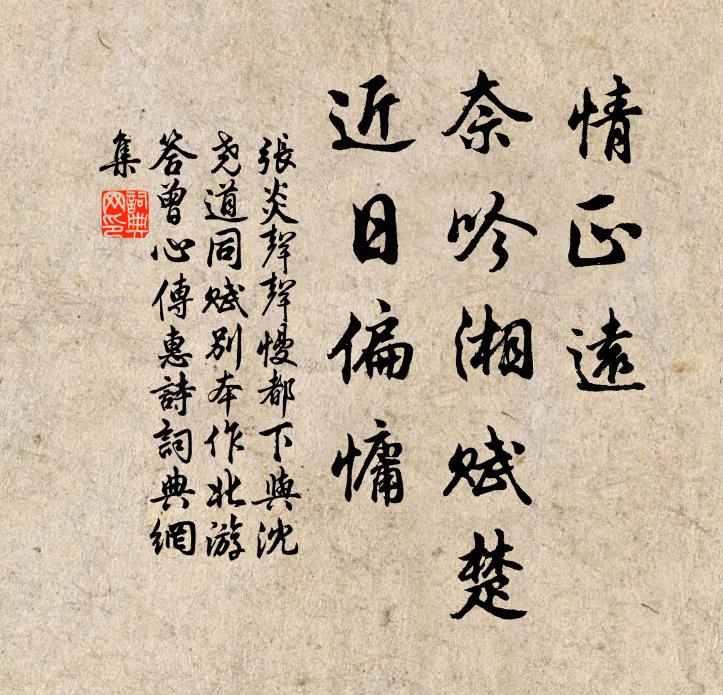 情正遠
奈吟湘賦楚
近日偏慵
張炎聲聲慢都下與沈
堯道同賦別本作北游
答曾心傳惠詩詞典網
集
詞典網印